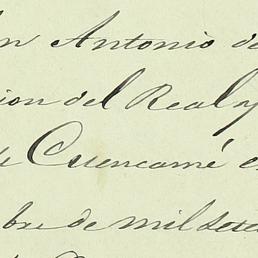 n Antonio de
ion del Real y
e Cuencamé e
bre de mil sete